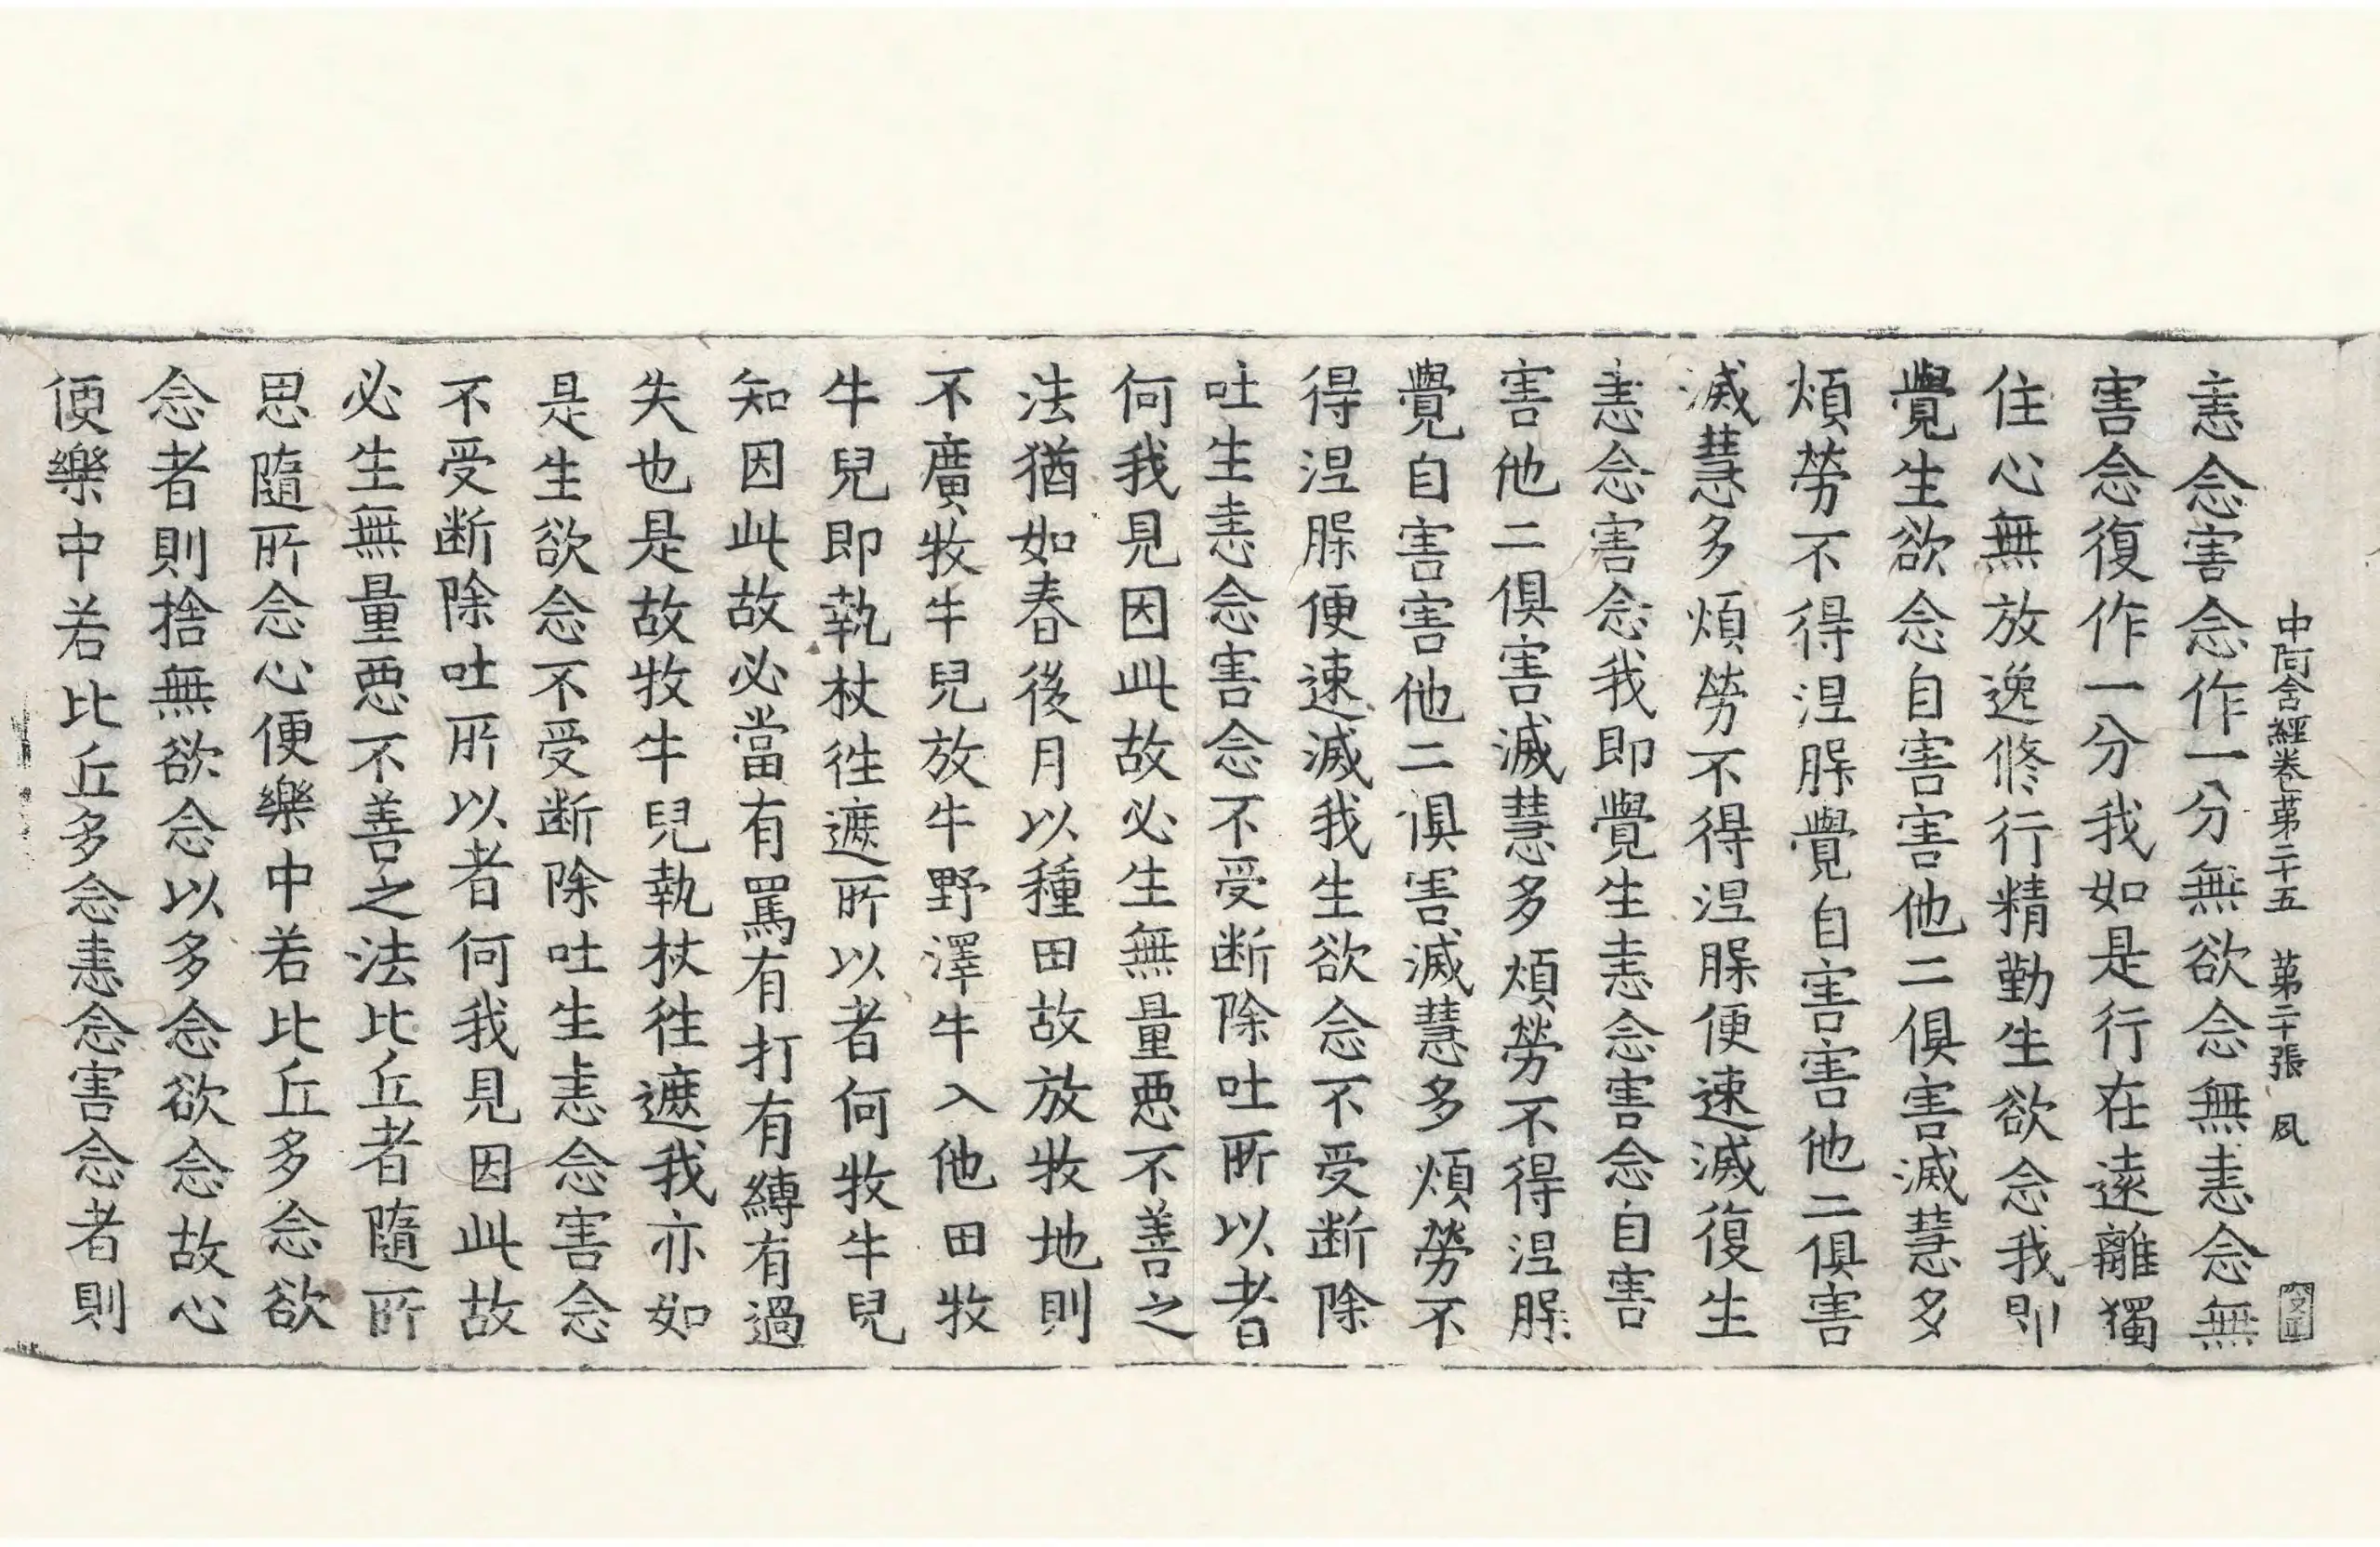 中阿含經卷第二十五 第二十張 夙
恚念害念作一分無欲念無恚念無
害念復作一分我如是行在遠離獨
住心無放逸修行精勤生欲念我即
覺生欲念自害害他二俱害滅慧多
煩勞不得涅槃覺自害害他二俱害
滅慧多煩勞不得涅槃便速滅復生
恚念害念我即覺生恚念害念自害
害他二俱害滅慧多煩勞不得涅槃
覺自害害他二俱害滅慧多煩勞不
得涅槃便速滅我生欲念不受断除
吐生恚念害念不受断除吐所以者
何我見因此故必生無量惡不善之
法猶如春後月以種田故放牧地則
不廣牧牛兒放牛野澤牛入他田牧
牛兒即執杖往遮所以者何牧牛兒
知因此故必當有罵有打有縛有過
失也是故牧牛兒執杖往遮我亦如
是生欲念不受断除吐生恚念害念
不受断除吐所以者何我見因此故
必生無量惡不善之法比丘者隨所
思隨所念心便樂中若比丘多念欲
念者則捨無欲念以多念欲念故心
便樂中若比丘多念恚念害念者則